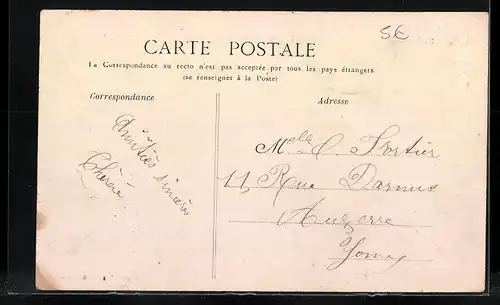 5€
CARTE POSTALE
La Correspondance au recto n'est pas acceptée par tous les pays étrangers
(se renseigner à la Poste)
Correspondance
Adresse
Amitiés sincères
Melle C. Fortier
11, Rue
Auxerre
Yonne